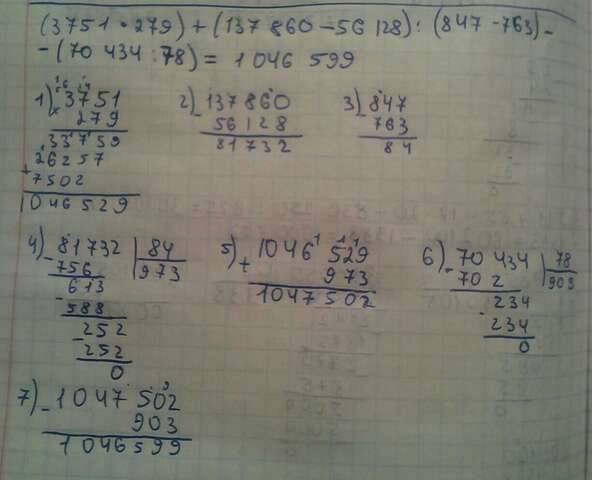 (3751 · 279) + (137 860 - 56 128) : (847 - 763) -
- (70 434 : 78) = 1 046 599
1) 3751
279
33759
26257
+
7502
1046529
2) - 137860
56128
81732
3) - 847
763
84
4) - 81732 | 84
756 973
613
- 588
252
- 252
0
5) + 1046 529
973
1047502
6) - 70 434 | 78
702 903
234
- 234
0
7) - 1047 502
903
1046599